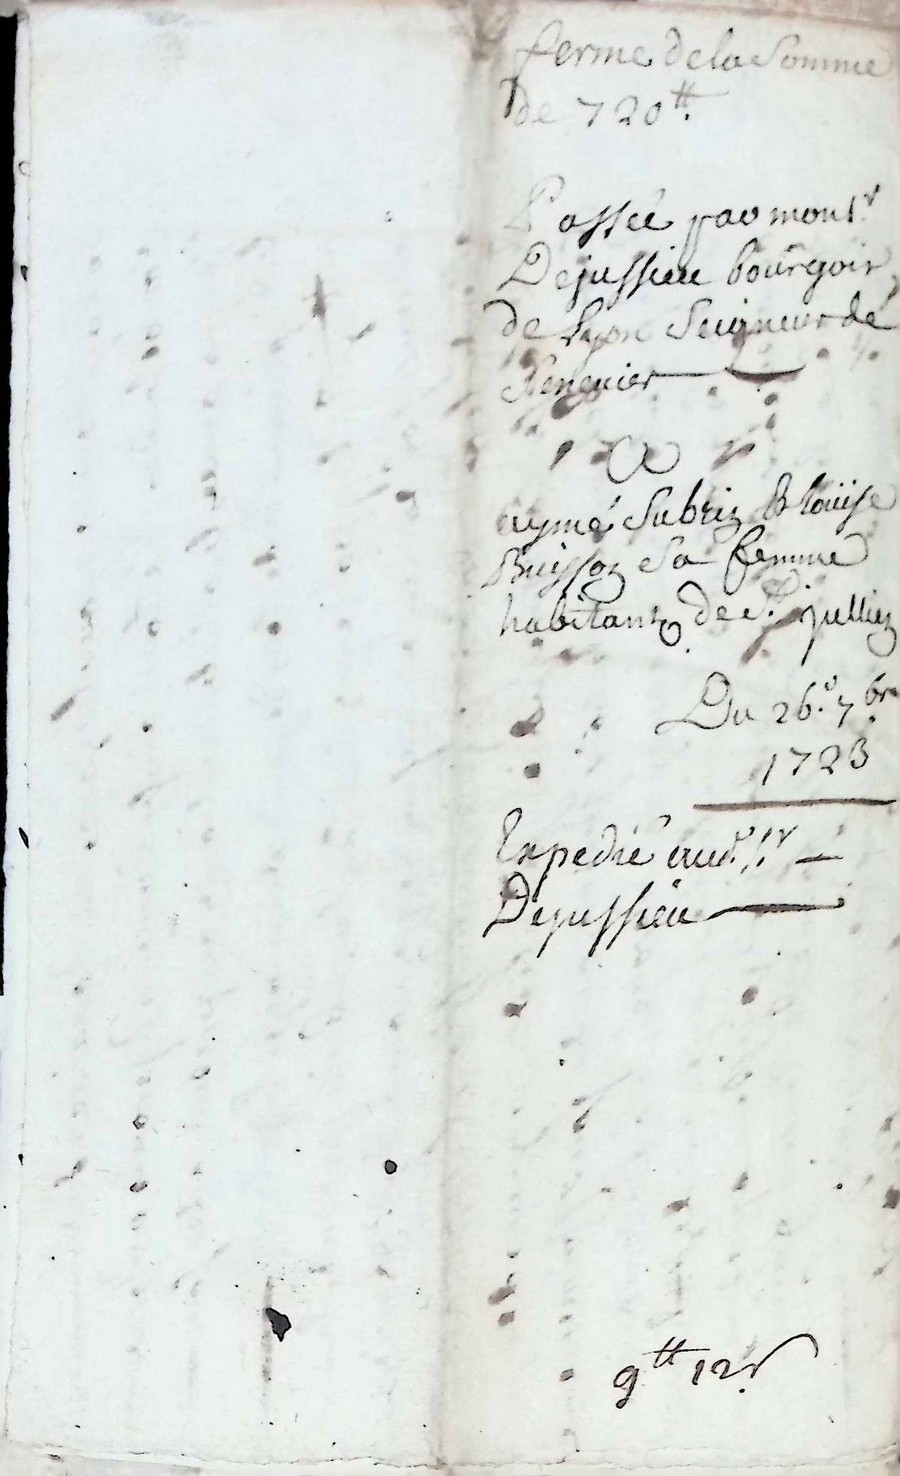 ferme de la Somme
de 720tt.
Passée par monsr
Dejussieu bourgois
de Lyon Seigneur de
A
aymé Subrin Blaise
Buisson Sa femme
habitants de St. jullien
Du 26e 7bre
1723
Expedié aud. sr
Dejussieu
9tt 12s